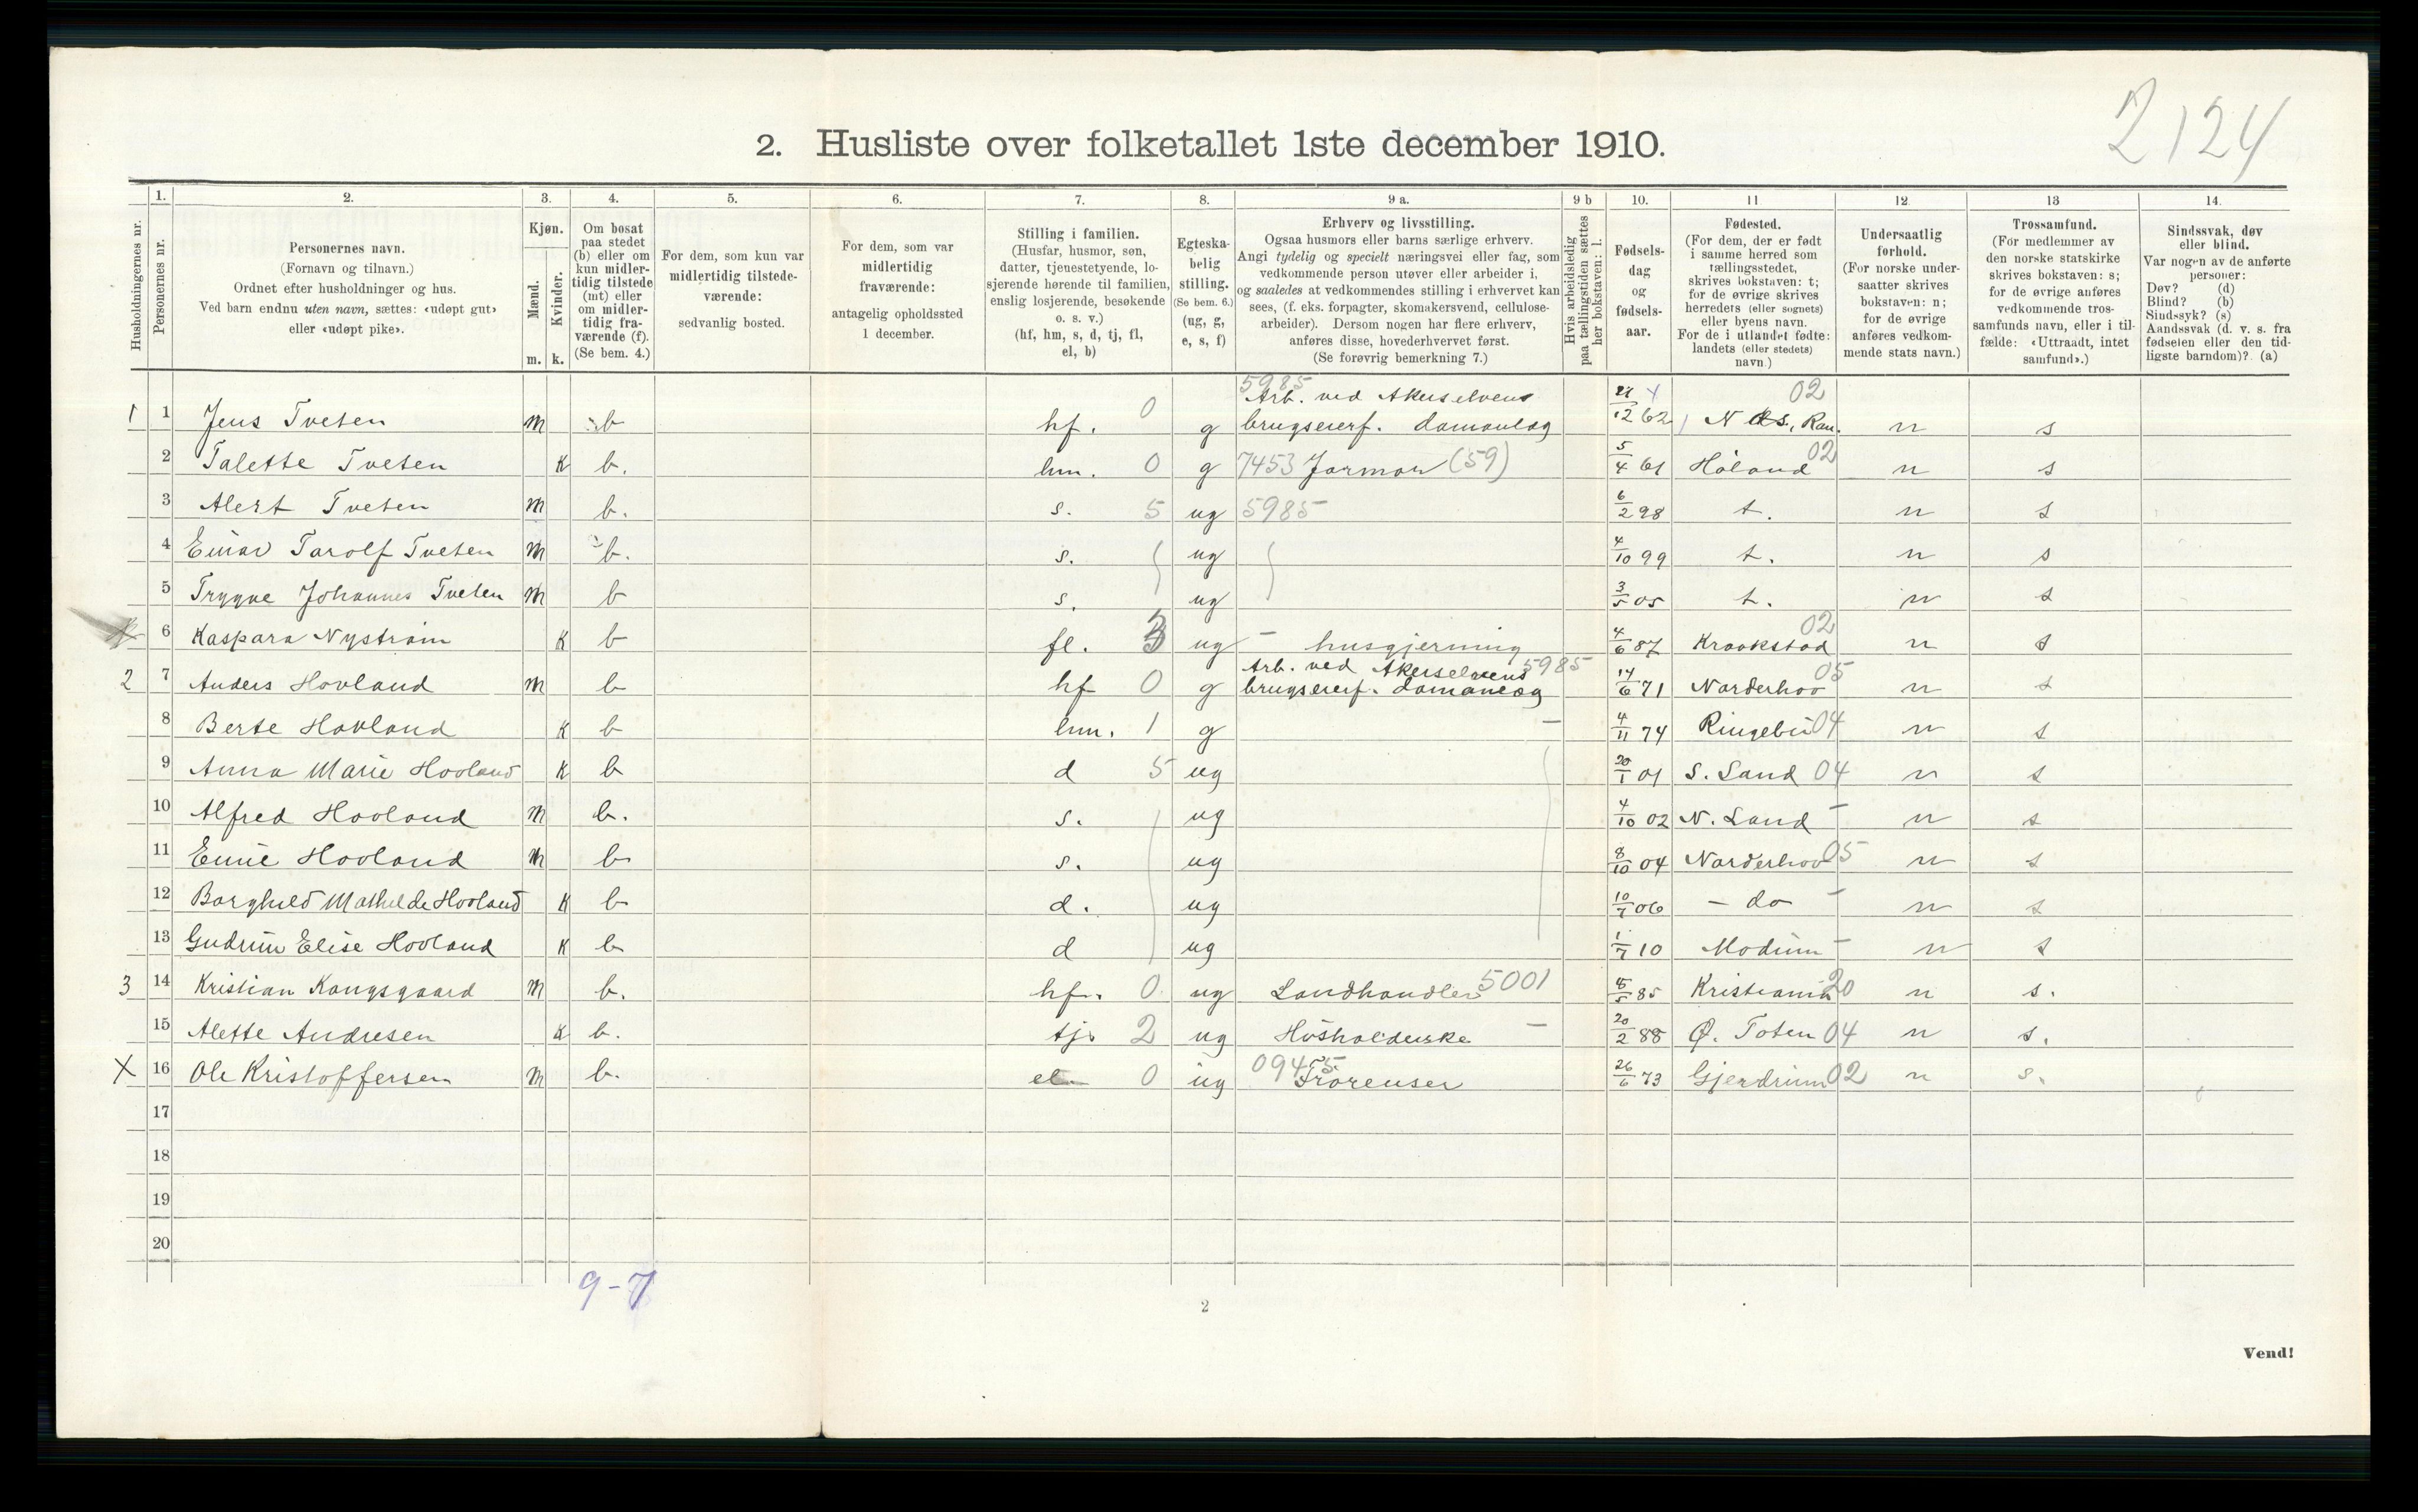 2124
2. Husliste over folketallet 1ste december 1910.
Husholdningernes nr.
1. Personernes nr.
2. Personernes navn.
(Fornavn og tilnavn.)
Ordnet efter husholdninger og hus.
Ved barn endnu uten navn, sættes: «udøpt gut»
eller «udøpt pike».
3. Kjøn.
Mænd. m.
Kvinder. k.
4. Om bosat
paa stedet
(b) eller om
kun midler-
tidig tilstede
(mt) eller
om midler-
tidig fra-
værende (f).
(Se bem. 4.)
5. For dem, som kun var
midlertidig tilstede-
værende:
sedvanlig bosted.
6. For dem, som var
midlertidig
fraværende:
antagelig opholdssted
1 december.
7. Stilling i familien.
(Husfar, husmor, søn,
datter, tjenestetyende, lo-
sjerende hørende til familien,
enslig losjerende, besøkende
o. s. v.)
(hf, hm, s, d, tj, fl,
el, b)
8. Egteska-
belig
stilling.
(Se bem. 6.)
(ug, g,
e, s, f)
9 a. Erhverv og livsstilling.
Ogsaa husmors eller barns særlige erhverv.
Angi tydelig og specielt næringsvei eller fag, som
vedkommende person utøver eller arbeider i,
og saaledes at vedkommendes stilling i erhvervet kan
sees, (f. eks. forpagter, skomakersvend, cellulose-
arbeider). Dersom nogen har flere erhverv,
anføres disse, hovederhvervet først.
(Se forøvrig bemerkning 7.)
9 b Hvis arbeidsledig
paa tællingstiden sættes
her bokstaven: l.
10. Fødsels-
dag
og
fødsels-
aar.
11 Fødested.
(For dem, der er født
i samme herred som
tællingsstedet,
skrives bokstaven: t;
for de øvrige skrives
herredets (eller sognets)
eller byens navn.
For de i utlandet fødte:
landets (eller stedets)
navn.)
12. Undersaatlig
forhold.
(For norske under-
saatter skrives
bokstaven: n;
for de øvrige
anføres vedkom-
mende stats navn.)
13 Trossamfund.
(For medlemmer av
den norske statskirke
skrives bokstaven: s;
for de øvrige anføres
vedkommende tros-
samfunds navn, eller i til-
fælde: «Uttraadt, intet
samfund».)
14. Sindssvak, døv
eller blind.
Var nogen av de anførte
personer:
Døv? (d)
Blind? (b)
Sindssyk? (s)
Aandssvak (d. v. s. fra
fødselen eller den tid-
ligste barndom)? (a)
1 1 Jens Tveten m b hf. 0 g 5985 Arb. ved Akerselvens brugseierf. damanlæg 12 62 02 n s
2 Talette Tveten k b. hm. 0 g 7453 Jormor (59) 5/4 61 Høland 02 n s
3 Alert Tveten m b. s. 5 ug 5985 6/2 98 t. n s
4 Einar Tarolf Tveten m b. s. ug 4/10 99 t. n s
5 Trygve Johannes Tveten m b s. ug 3/5 05 t. n s
X 6 Kaspara Nystrøm k b fl. 3 ug - husgjerning 4/6 87 Kraakstad 02 n s
2 7 Anders Hovland m b hf 0 g Arb. ved Akerselvens 5985 brugseierf. damanlæg 14/6 71 Norderhov 05 n s
8 Berte Hovland k b hm. 1 g - 4/11 74 Ringebu 04 n s
9 Anna Marie Hovland k b d 5 ug 20/1 01 S. Land 04 n s
10 Alfred Hovland m b. s. ug 4/10 02 N. Land - n s
11 Hovland m b s. ug 8/10 04 Norderhov 05 n s
12 Borghild Mathilde Hovland k b d. ug 10/7 06 - do - n s
13 Gudrun Elise Hovland k b d ug 1/7 10 Modum - n s
3 14 Kristian Kongsgaard m b. hf. 0 ug Landhandler 5001 5 85 Kristiania 20 n s.
15 Alette Andresen k b. tj. 2 ug Husholderske - 20/2 88 Ø. Toten 04 n s.
X 16 Ole Kristoffersen m b. el. 0 ug 0945 Frørenser 26/6 73 Gjerdrum 02 n s.
17
18
19
20
9-7
2
Vend!